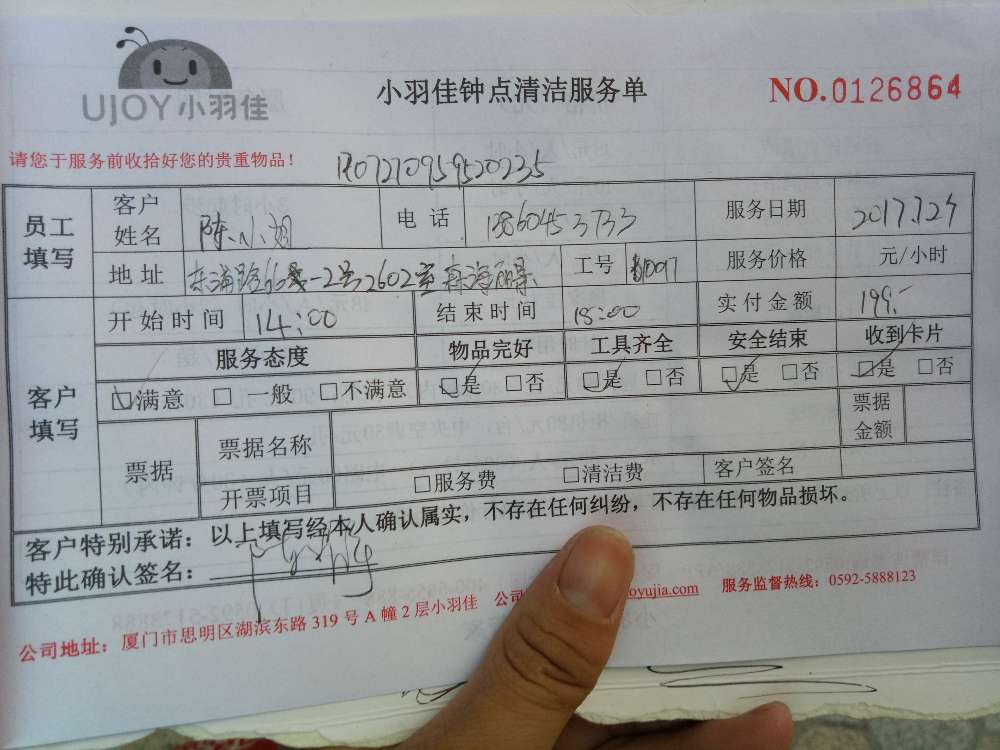 UJOY小羽佳
小羽佳钟点清洁服务单
NO.0126864
请您于服务前收拾好您的贵重物品！
员工填写
客户姓名
电话
13860453733
服务日期
地址
工号
服务价格
元/小时
客户填写
开始时间
14:00
结束时间
18:00
实付金额
199.-
服务态度 物品完好 工具齐全 安全结束 收到卡片
☑满意 □一般 □不满意 ☑是 □否 ☑是 □否 ☑是 □否 ☑是 □否
票据
票据名称
票据金额
开票项目
□服务费 □清洁费
客户签名
客户特别承诺：以上填写经本人确认属实，不存在任何纠纷，不存在任何物品损坏。
特此确认签名：
公司地址：厦门市思明区湖滨东路 319 号 A 幢 2 层小羽佳 公司 oyujia.com 服务监督热线：0592-5888123